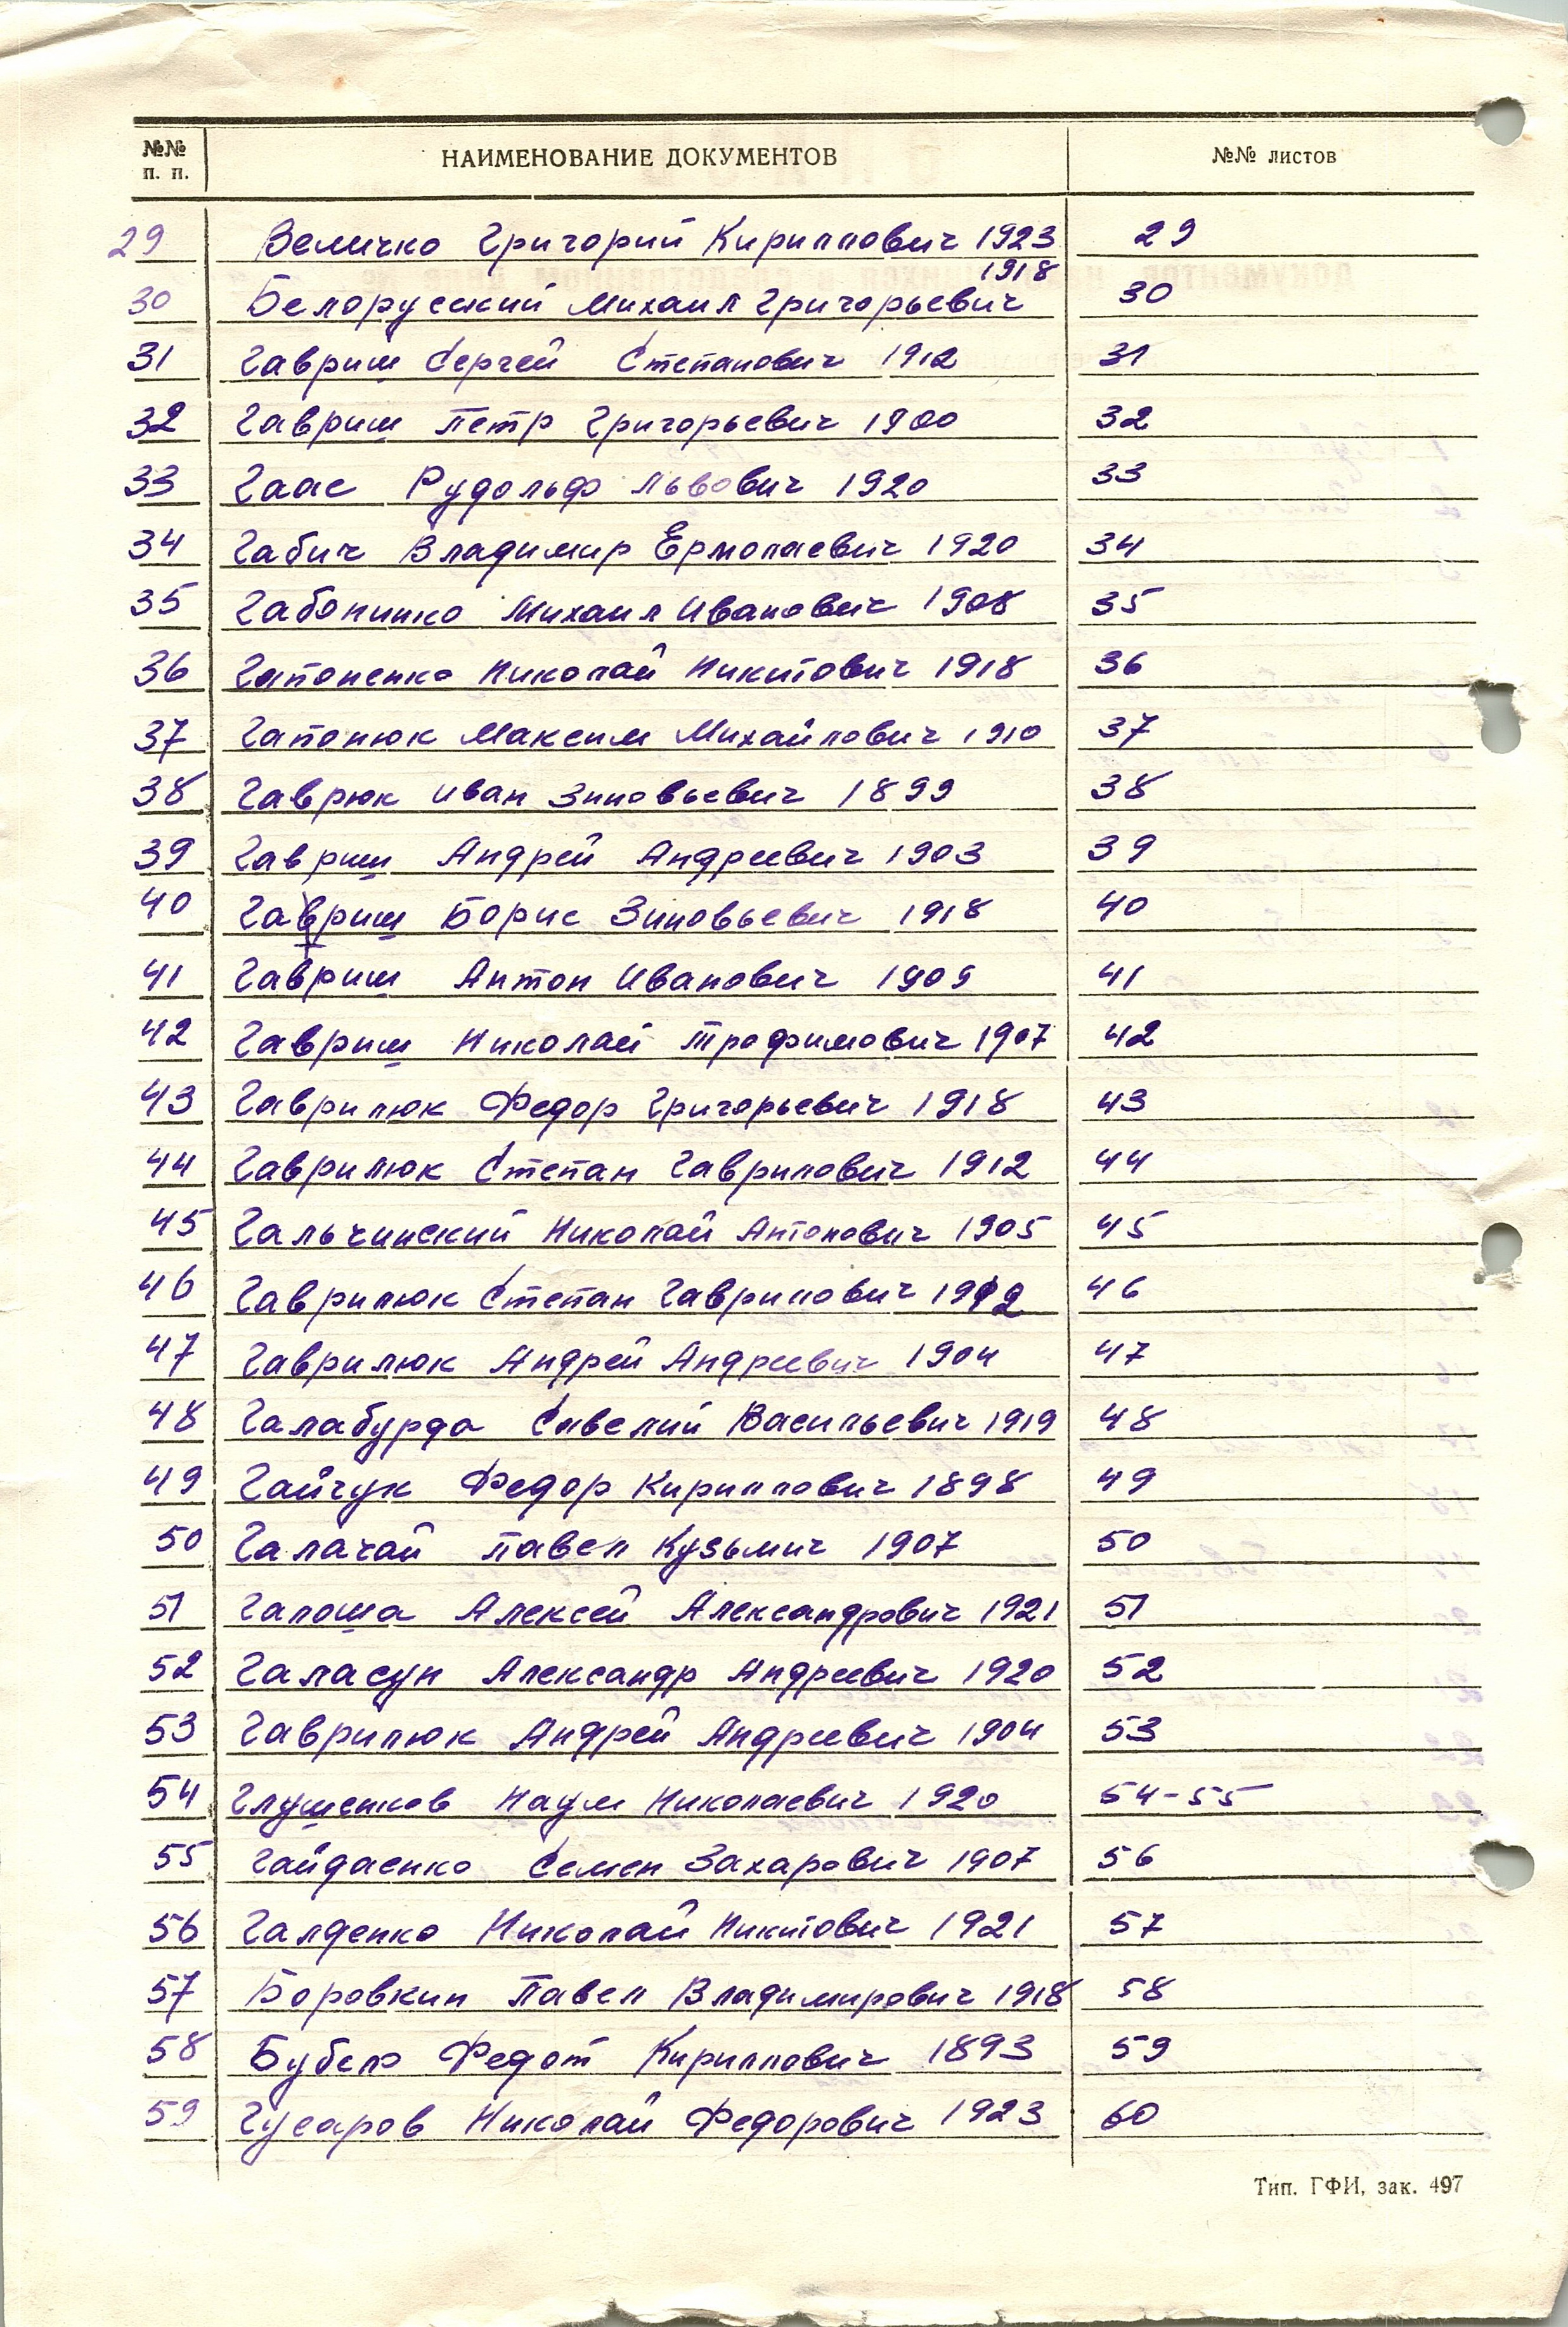 №№ п. п. НАИМЕНОВАНИЕ ДОКУМЕНТОВ №№ листов
29 Величко Григорий Кириллович 1923 29
1918
30 Белорусский Михаил Григорьевич 30
31 Гавриш Сергей Степанович 1912 31
32 Гавриш Петр Григорьевич 1900 32
33 Гаас Рудольф Львович 1920 33
34 Габич Владимир Ермолаевич 1920 34
35 Габонинко Михаил Иванович 1908 35
36 Гапоненко Николай Никитович 1918 36
37 Гапонюк Максим Михайлович 1910 37
38 Гаврюк Иван Зиновьевич 1899 38
39 Гавриш Андрей Андреевич 1903 39
40 Гавриш Борис Зиновьевич 1918 40
41 Гавриш Антон Иванович 1909 41
42 Гавриш Николай Трофимович 1907 42
43 Гаврилюк Федор Григорьевич 1918 43
44 Гаврилюк Степан Гаврилович 1912 44
45 Гальчинский Николай Антонович 1905 45
46 Гаврилюк Степан Гаврилович 1912 46
47 Гаврилюк Андрей Андреевич 1904 47
48 Галабурда Савелий Васильевич 1919 48
49 Гайчук Федор Кириллович 1898 49
50 Галачай Павел Кузьмич 1907 50
51 Галоша Алексей Александрович 1921 51
52 Галасун Александр Андреевич 1920 52
53 Гаврилюк Андрей Андреевич 1904 53
54 Глушенков Наум Николаевич 1920 54-55
55 Гайдаенко Семен Захарович 1907 56
56 Галденко Николай Никитович 1921 57
57 Боровкин Павел Владимирович 1918 58
58 Федот Кириллович 1893 59
59 Гусаров Николай Федорович 1923 60
Тип. ГФИ, зак. 497